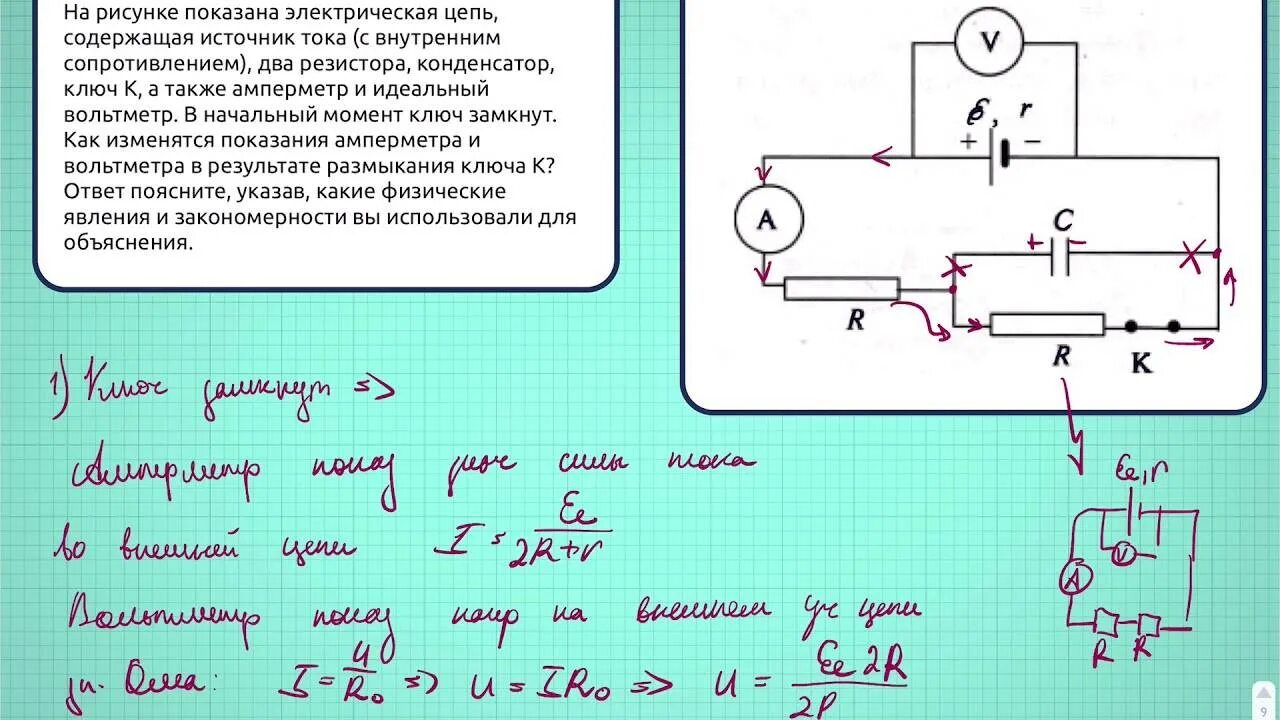 На рисунке показана электрическая цепь,
содержащая источник тока (с внутренним
сопротивлением), два резистора, конденсатор,
ключ K, а также амперметр и идеальный
вольтметр. В начальный момент ключ замкнут.
Как изменятся показания амперметра и
вольтметра в результате размыкания ключа K?
Ответ поясните, указав, какие физические
явления и закономерности вы использовали для
объяснения.
V
ℰ, r
+ −
A
C
+ −
R
R
K
1) Ключ замкнут =>
Амперметр показ знач силы тока
во внешней цепи I = ℰ / 2R+r
Вольтметр показ напр на внешнем уч цепи
зн. Ома: I = U/R₀ => U = IR₀ => U = ℰ 2R / 2R
ℰ, r
V
A
R R
9